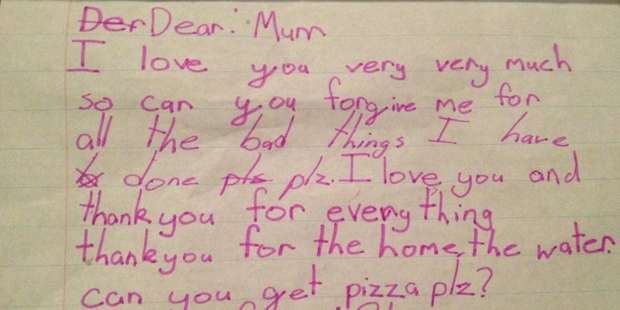 Der Dear: Mum
I love you very very much
so can you forgive me for
all the bad things I have
done pls plz. I love you and
thankyou for everything
thankyou for the home, the water.
can you get pizza plz?